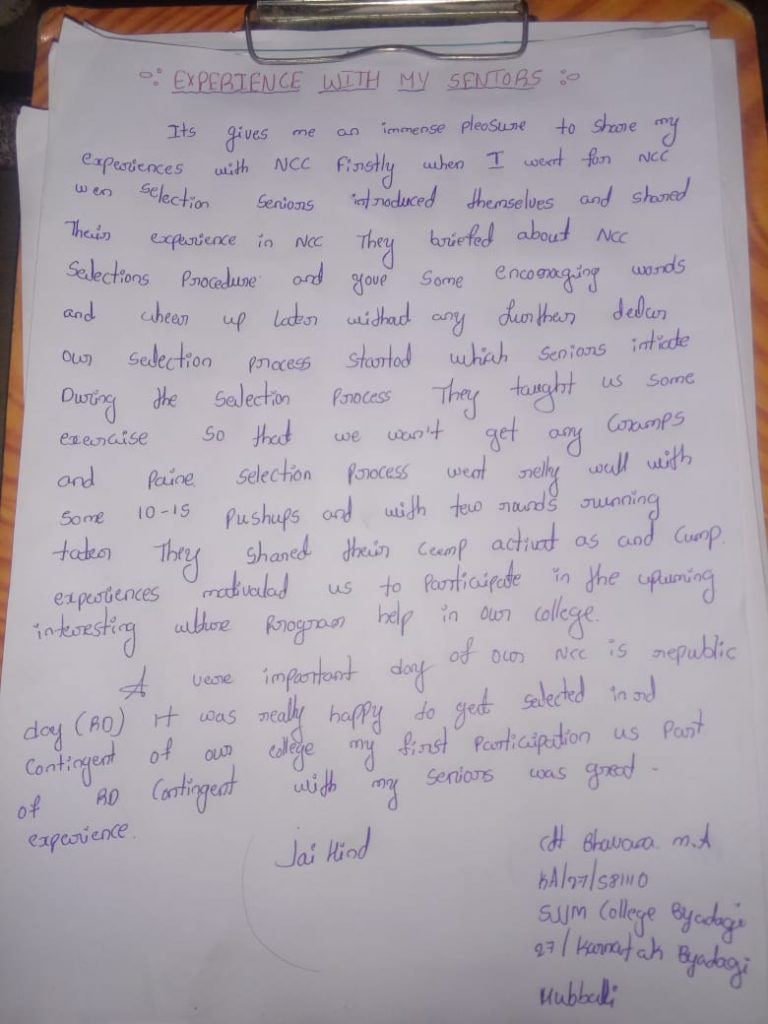 EXPERIENCE WITH MY SENIORS
Its gives me an immense pleasure to share my
experiences with NCC Firstly when I went for NCC
selection Seniors introduced themselves and shared
Their experience in NCC They briefed about NCC
Selections Procedure and gave some encouraging words
and cheer up Later any further
our selection process started which seniors
During the Selection Process They taught us some
exercise So that we wan't get any Cramps
and Paine selection process went relly well with
some 10-15 Pushups and with few rounds running
They shared their and
experiences us to Participate in the
interesting Program help in our college.
A important day of our NCC is republic
day (RD) It was really happy to get selected in rd
Contingent of our college my first Participation us Part
of RD Contingent with my seniors was great -
experience.
Jai Hind
Cdt M.A
KA/27/
College Byadagi
27/Karnatak Byadagi